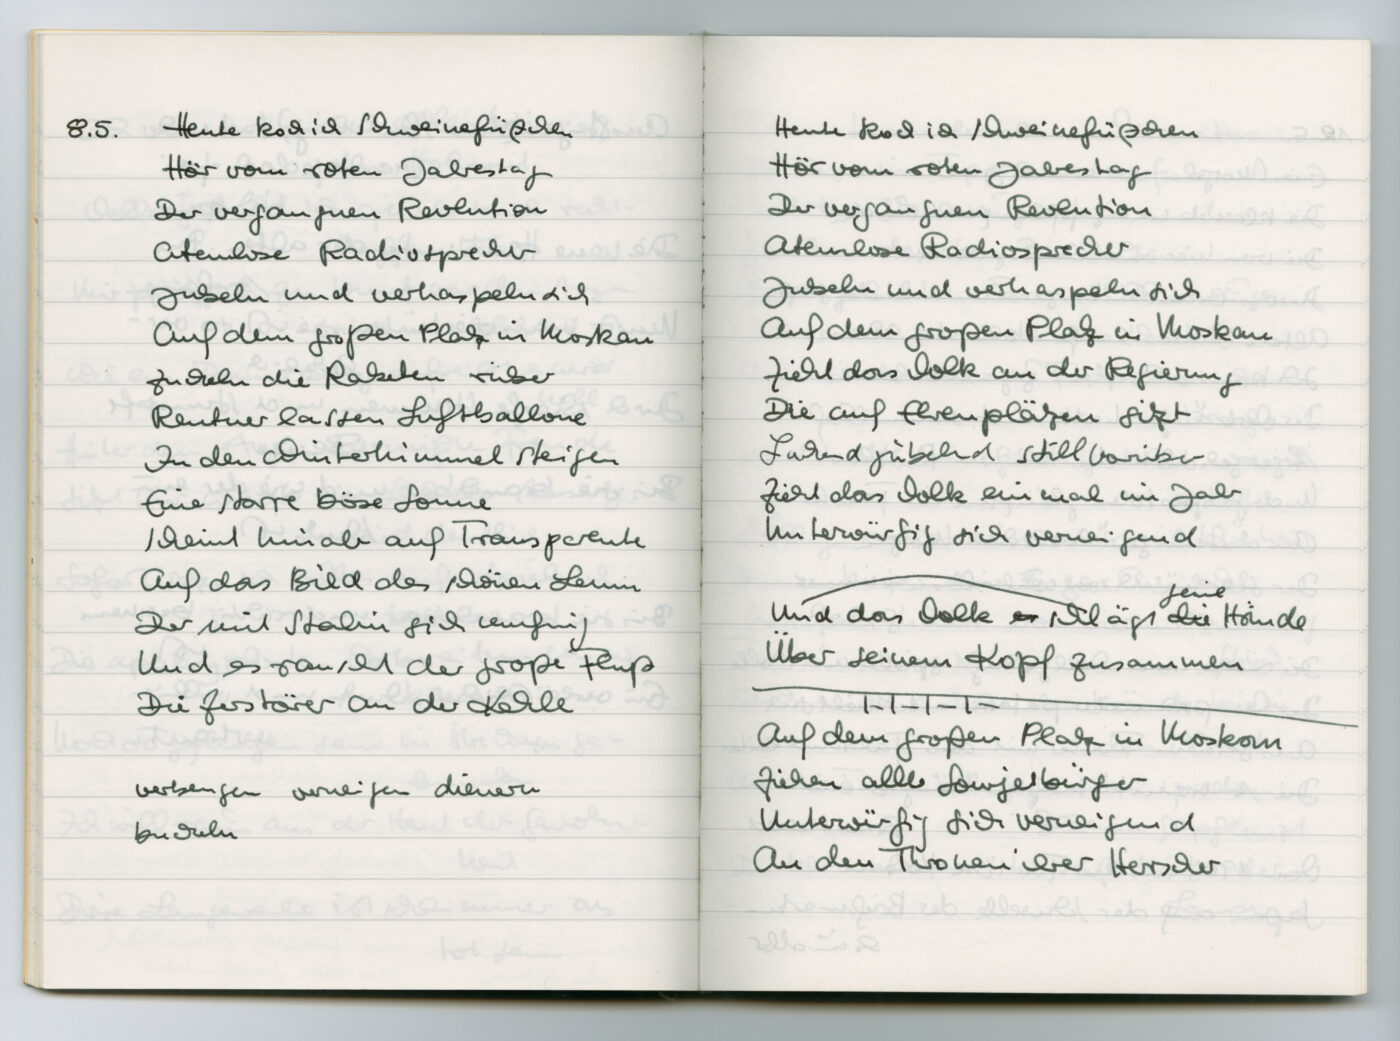 8.5. Heute koch ich Schweinefüßchen
Hör vom roten Jahrestag
Der vergangnen Revolution
Atemlose Radiosprecher
Jubeln und verhaspeln sich
Auf dem großen Platz in Moskau
zuckeln die Raketen rüber
Rentner lassen Luftballone
In den Winterhimmel steigen
Eine starre böse Sonne
Scheint hinab auf Transparente
Auf das Bild des schönen Lenin
Der mit Stalin sich
Und es rauscht der große Fluß
Die Zerstörer an der Kehle
verbeugen verneigen dienern
buckeln
Heute koch ich Schweinefüßchen
Hör vom roten Jahrestag
Der vergangnen Revolution
Atemlose Radiosprecher
Jubeln und verhaspeln sich
Auf dem großen Platz in Moskau
Zieht das Volk an der Regierung
Die auf Ehrenplätzen sitzt
Lachend jubelnd still vorüber
Zieht das Volk einmal im Jahr
Unterwürfig sich verneigend
seine
Und das Volk es schlägt die Hände
Über seinem Kopf zusammen
Auf dem großen Platz in Moskau
Ziehen alle Sowjetbürger
Unterwürfig sich verneigend
An den Thronen ihrer Herrscher